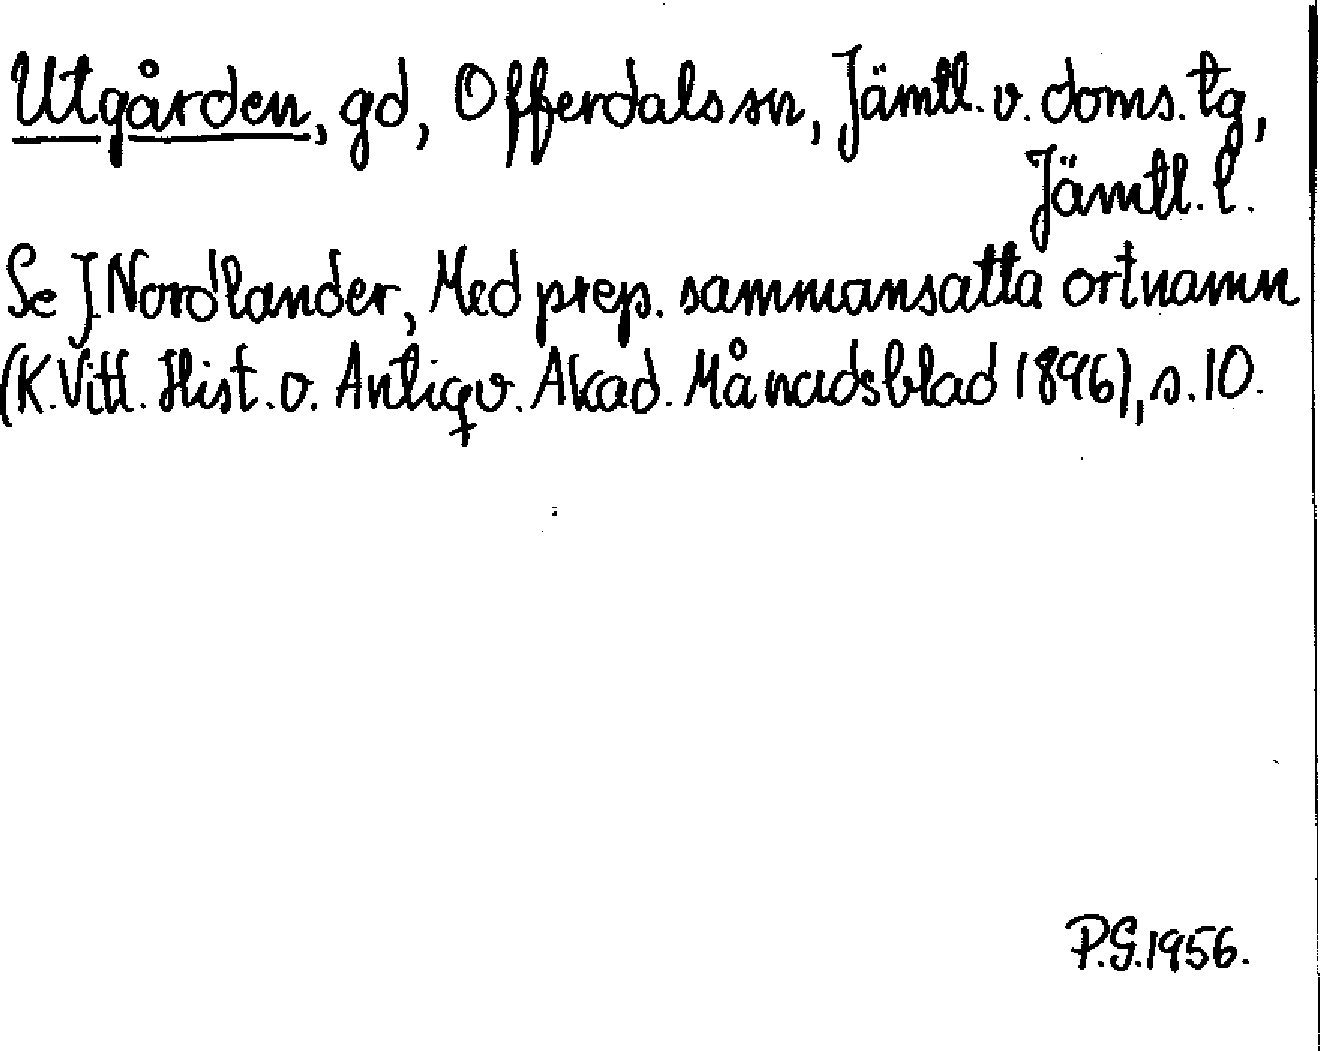 Utgården, gd, Offerdals sn, Jämtl. v. doms. tg,
Jämtl. l.
Se J. Nordlander, Med prep. sammansatta ortnamn
(K. Vitt. Hist. o. Antiqv. Akad. Månadsblad 1896), s. 10.
P.G. 1956.